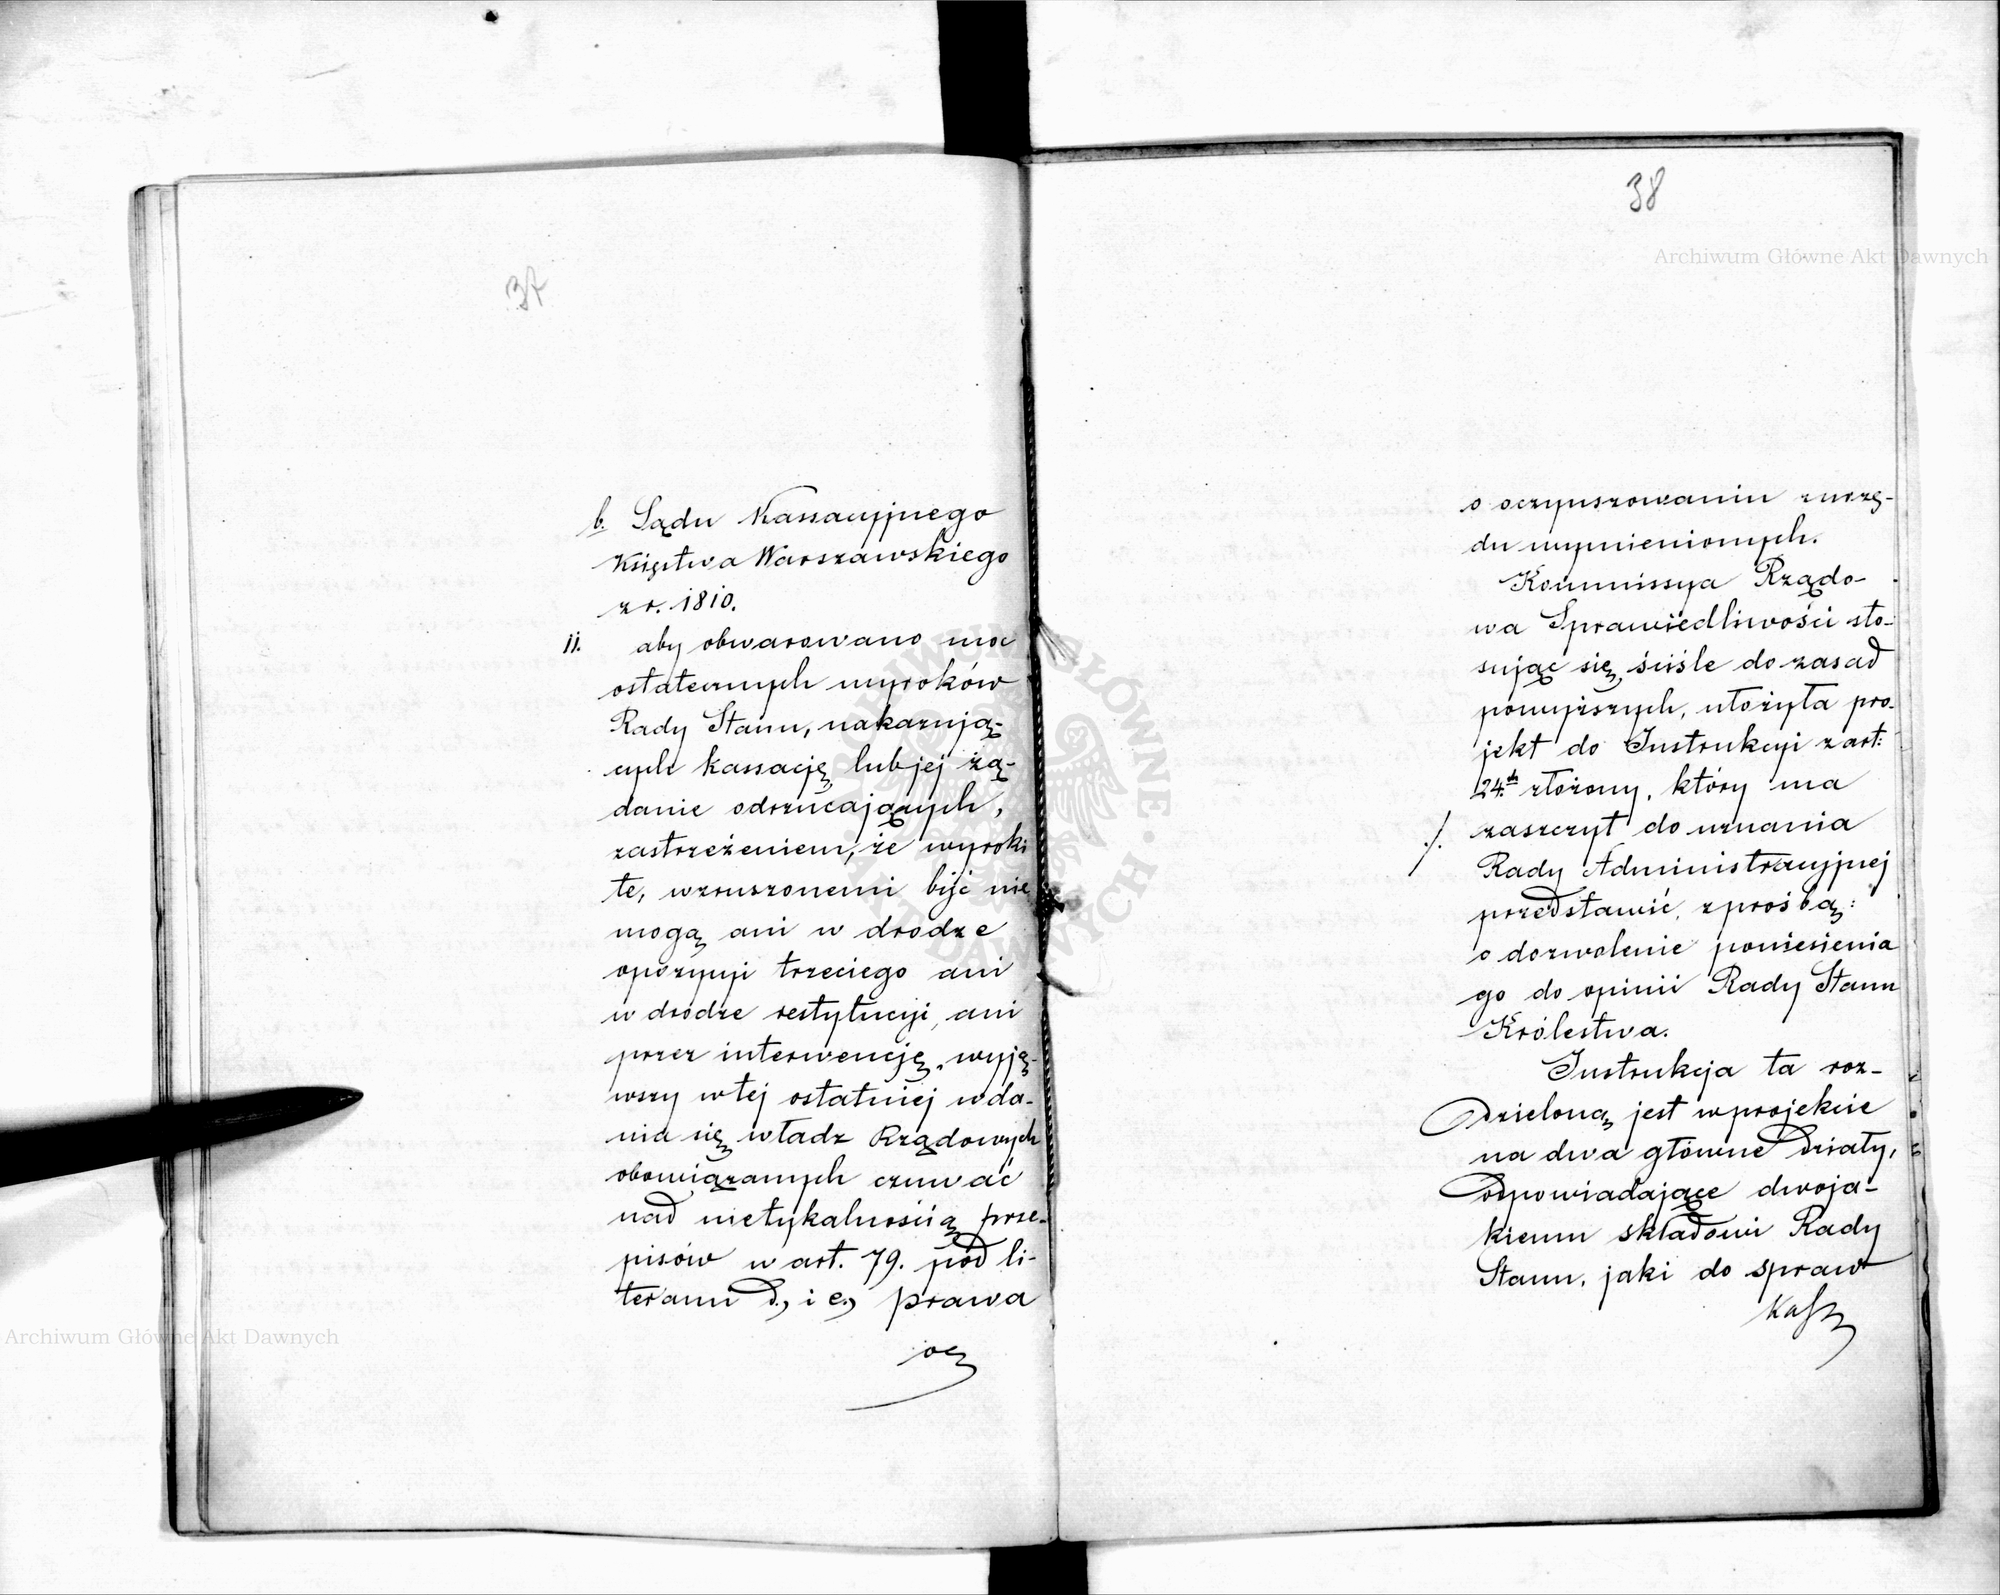 37
b. Sądu Kassacyjnego
Księstwa Warszawskiego
z r. 1810.
ii. aby obwarowano moc
ostatecznych wyroków
Rady Stanu, nakazują-
cych kassację lub jej żą-
danie odrzucających,
zastrzeżeniem, że wyroki
te, wzruszonemi być nie
mogą ani w drodze
opozycyi trzeciego ani
w drodze restytucyi, ani
przez interwencję, wyją-
wszy w tej ostatniej wda-
nia się władz Rządowych
obowiązanych czuwać
nad nietykalnością prze-
pisów w art. 79. pod li-
terami d, i e, prawa
38
o oczynszowaniu z urzę-
du wymienionych.
Kommissya Rządo-
wa Sprawiedliwości sto-
sując się ściśle do zasad
powyższych, ułożyła pro-
jekt do Instrukcyi z art:
24. złożony, który ma
./. zaszczyt do uznania
Rady Administracyjnej
przedstawić, z prośbą:
o dozwolenie poniesienia
go do opinii Rady Stanu
Królestwa.
Instrukcja ta roz-
dzieloną jest w projekcie
na dwa główne działy,
odpowiadające dwoja-
kiemu składowi Rady
Stanu, jaki do spraw
Archiwum Główne Akt Dawnych
Archiwum Główne Akt Dawnych